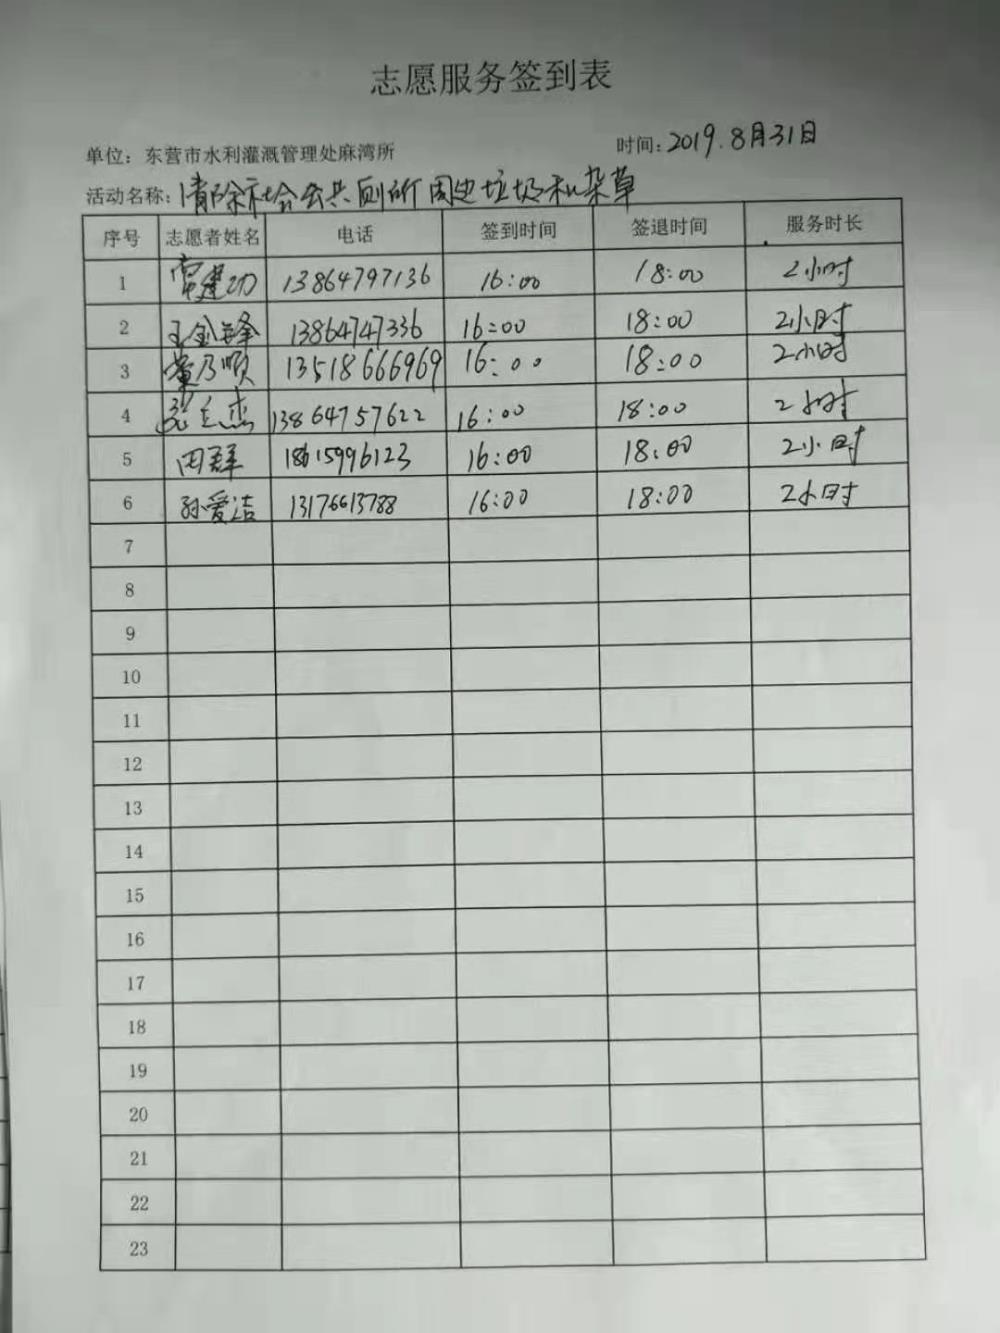 志愿服务签到表
单位：东营市水利灌溉管理处麻湾所 时间：2019.8月31日
活动名称：清除社会公共厕所周边垃圾和杂草
序号 志愿者姓名 电话 签到时间 签退时间 服务时长
1 常建功 13864797136 16:00 18:00 2小时
2 王金锋 13864747336 16:00 18:00 2小时
3 黄乃顺 13518666969 16:00 18:00 2小时
4 13864757622 16:00 18:00 2小时
5 田群 18615996123 16:00 18:00 2小时
6 孙爱洁 13176613788 16:00 18:00 2小时
7
8
9
10
11
12
13
14
15
16
17
18
19
20
21
22
23